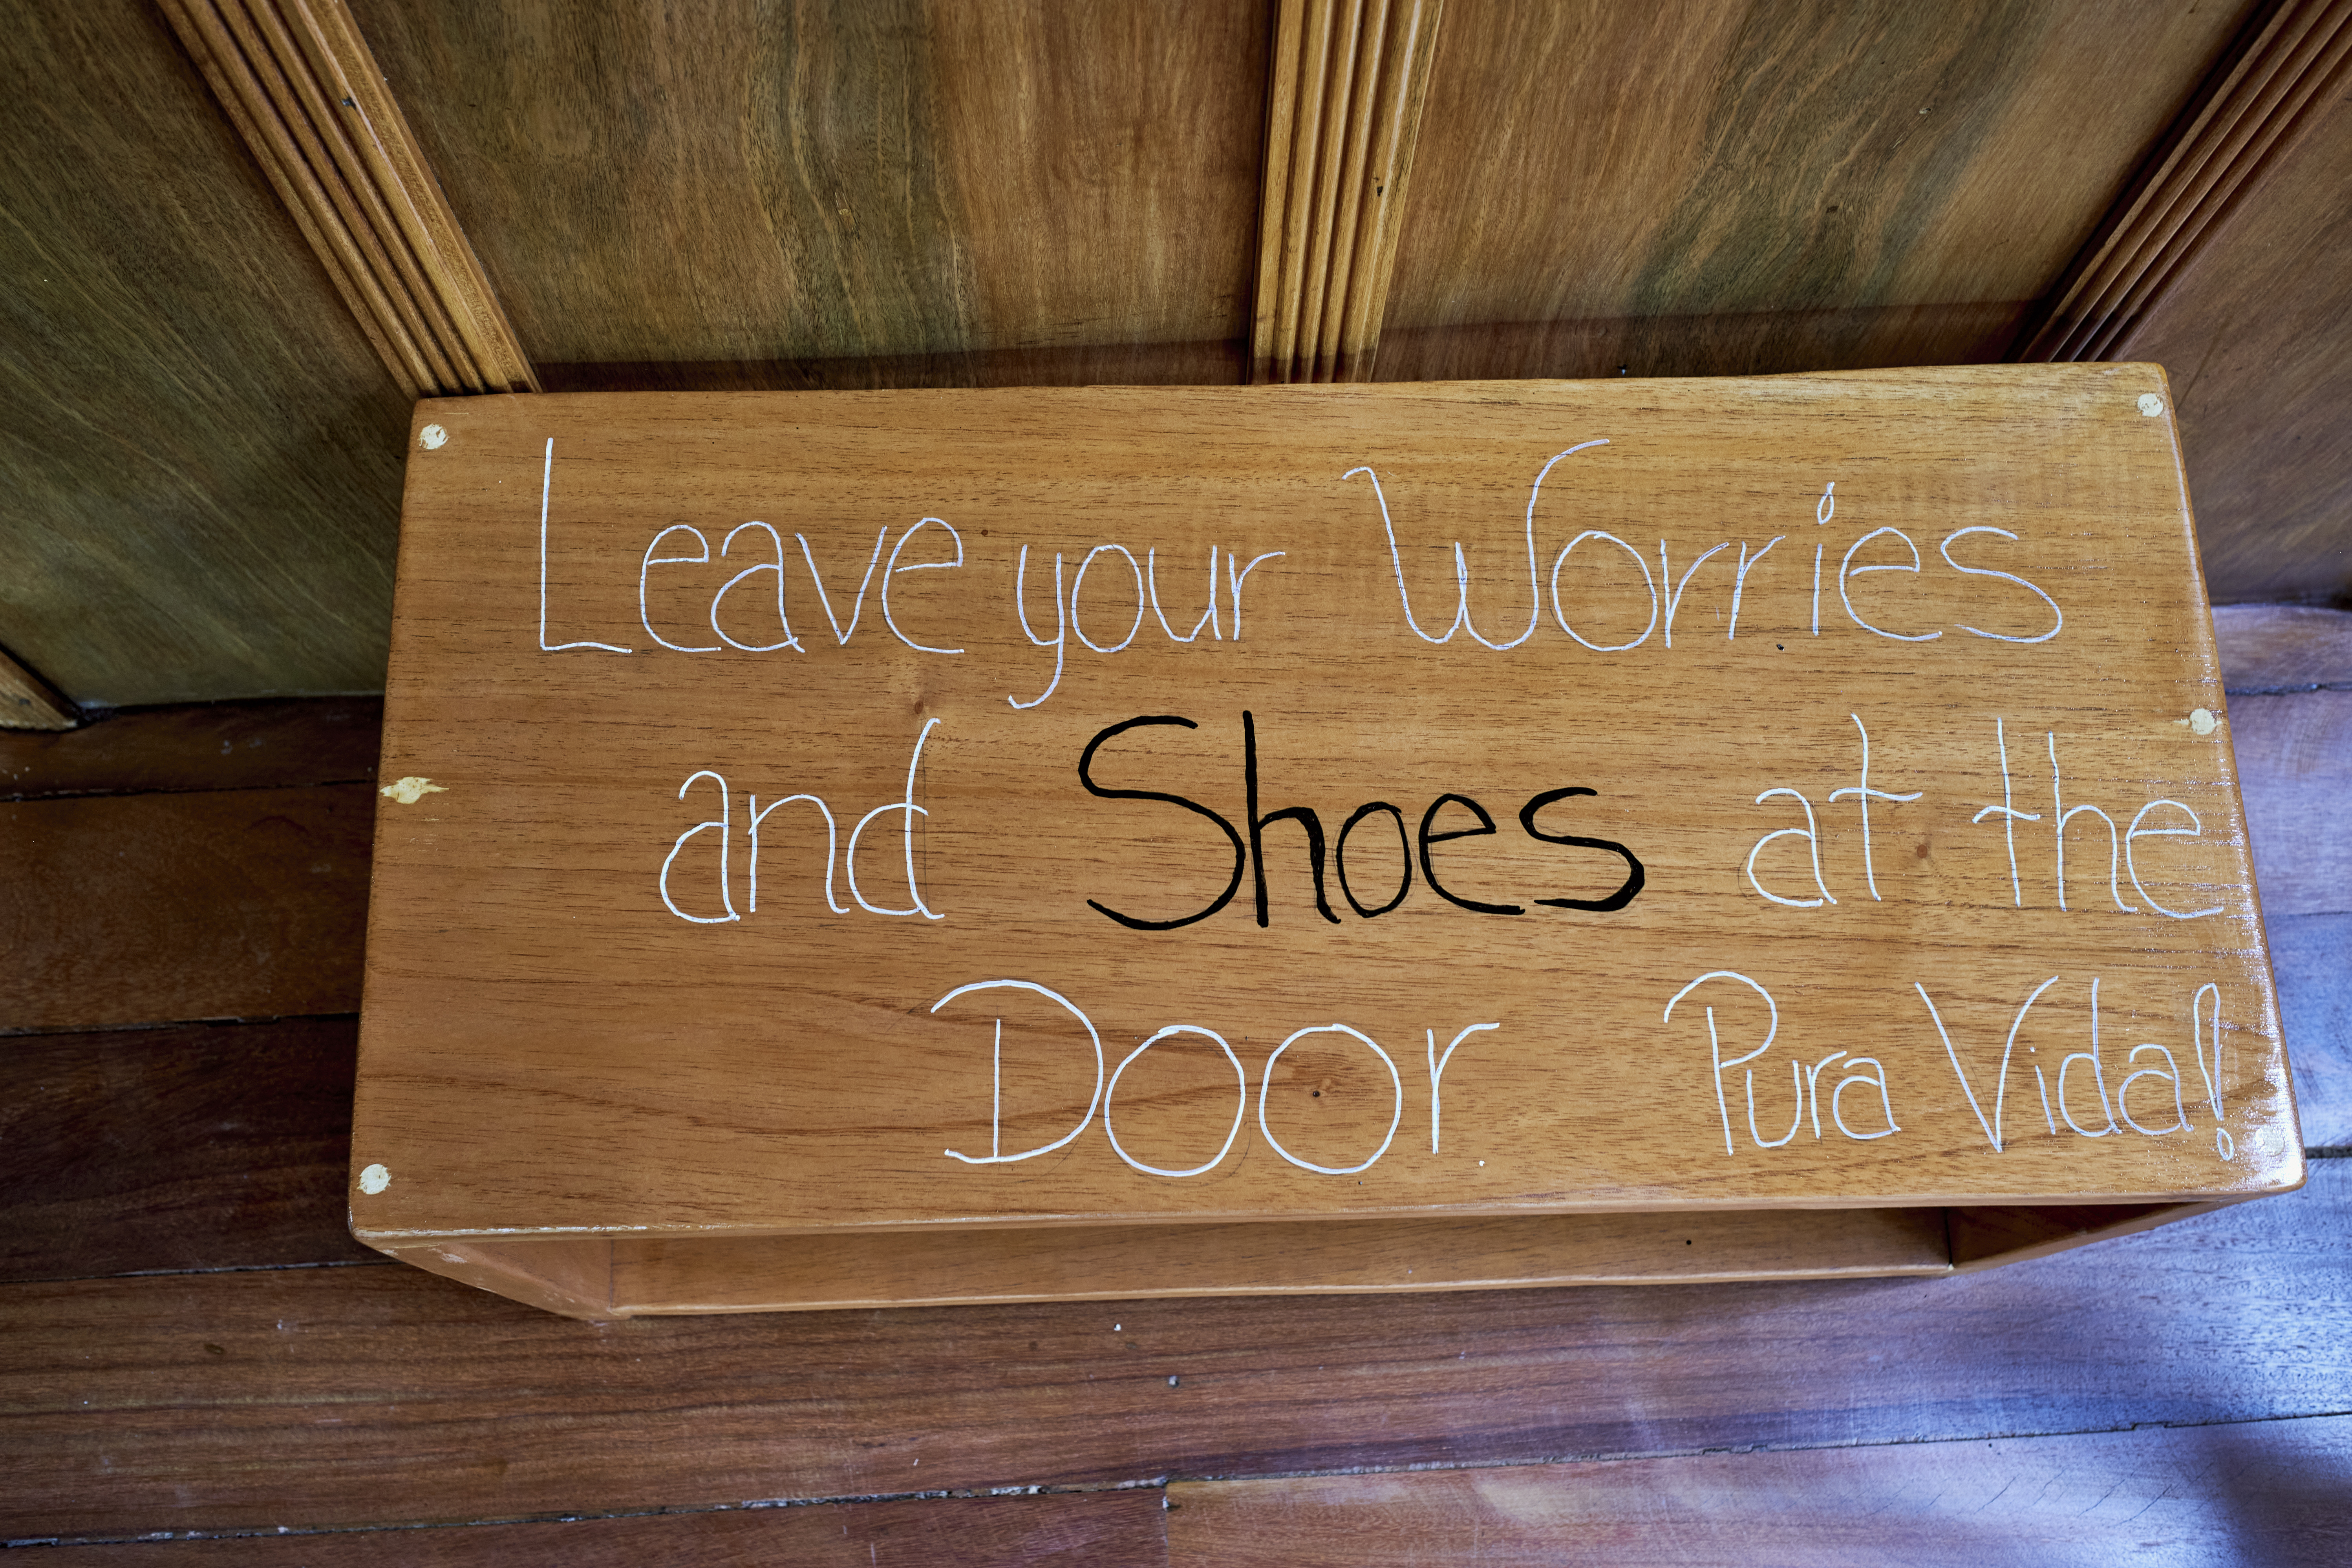 Leave your Worries
and Shoes at the
Door Pura Vida!